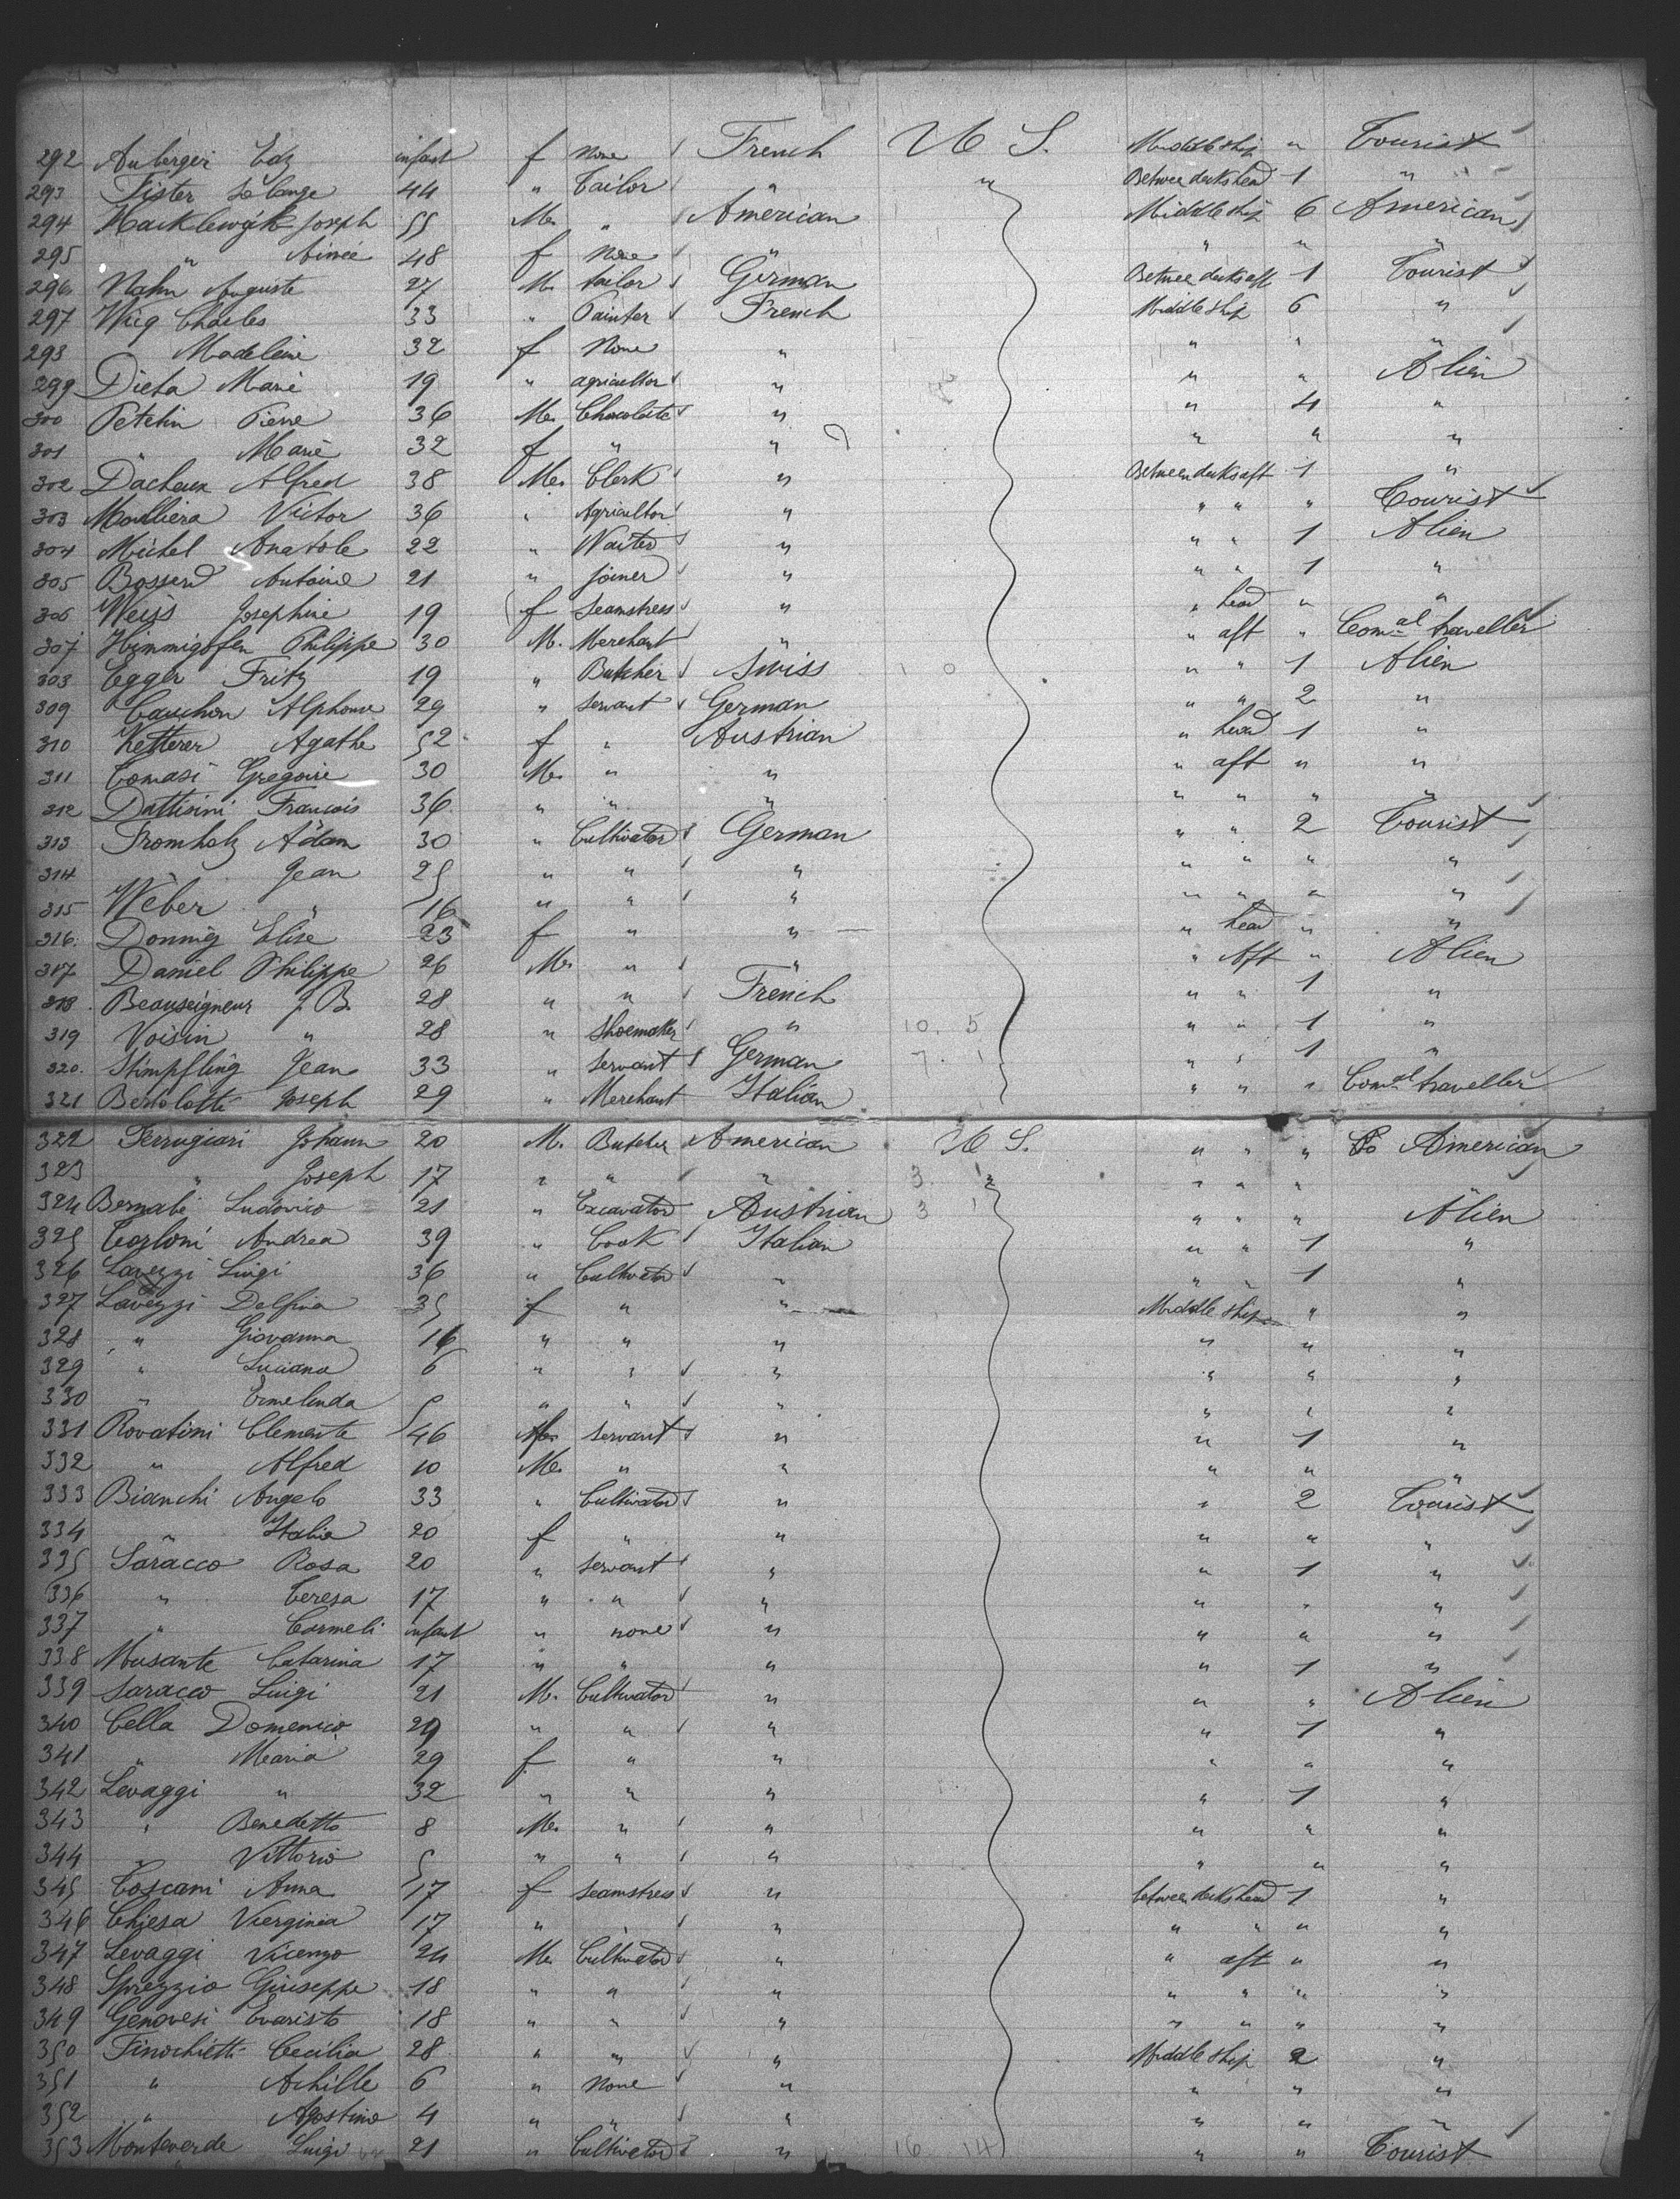 292 Auberger Edz infant f None French U S. Middle ship " Tourist
293 Fister Solange 44 " Tailor " " Between decks head 1 "
294 Joseph 55 M. " American Middle ship 6 American
295 " Aimée 48 f None " " " "
296 Nahn Auguste 27 M. tailor German Between decks aft 1 Tourist
297 Wieg Charles 33 " Painter French Middle ship 6 "
298 Madeleine 32 f None " " " "
299 Dieta Marie 19 " agricultor " " " Alien
300 Petetin Pierre 36 M. Chocolate " " 4 "
301 " Marie 32 f " " " " "
302 Dacheux Alfred 38 M. Clerk " Between decks aft 1 "
303 Moulliera Victor 36 " Agricultor " " " " Tourist
304 Michel Anatole 22 " Waiter " " " 1 Alien
305 Bosserd Antoine 21 " joiner " " " 1 "
306 Weiss Josephine 19 f Seamstress " " head " "
307 Himmigofen Philippe 30 M. Merchant " " aft " Com.al traveller
308 Egger Fritz 19 " Butcher Swiss 1 0 " " 1 Alien
309 Cauchon Alphonse 29 " Servant German " " 2 "
310 Ketterer Agathe 52 f " Austrian " head 1 "
311 Comasi Gregoire 30 M. " " " aft " "
312 Dattisini Francois 36 " " " " " " "
313 Fromholz Adam 30 " Cultivator German " " 2 Tourist
314 " Jean 25 " " " " " " "
315 Weber " 16 " " " " " " "
316. Donnig Elise 23 f " " " head " "
317 Daniel Philippe 26 M. " " " Aft " Alien
318. Beauseigneur J. B. 28 " " French " " 1 "
319 Voisin " 28 " Shoemaker " 10. 5 " " 1 "
320. Stimpfling Jean 33 " Servant German 7. 1 " " 1 "
321 Bertolotti Joseph 29 " Merchant Italian " " " Com.al traveller
322 Ferrugiari Johann 20 M. Butcher American U S. " " " Co American
323 " Joseph 17 " " " 3. 1 " " " "
324 Bernabi Ludovico 21 " Excavator Austrian 3 1 " " " Alien
325 Corloni Andrea 39 " Cook Italian " " 1 "
326 Lavezzi Luigi 36 " Cultivator " " " 1 "
327 Lavezzi Delfina 35 f " " Middle ship " "
328 " Giovanna 16 " " " " " "
329 " Luciana 6 " " " " " "
330 " Ermelinda 5 " " " " " "
331 Rovatini Clemente 46 M. Servant " " 1 "
332 " Alfred 10 M. " " " " "
333 Bianchi Angelo 33 " Cultivator " " 2 Tourist
334 " Italia 20 f " " " " "
335 Saracco Rosa 20 " Servant " " 1 "
336 " Teresa 17 " " " " " "
337 " Carmeli infant " none " " " "
338 Musante Catarina 17 " " " " 1 "
339 Saracco Luigi 21 M. Cultivator " " " Alien
340 Cella Domenico 29 " " " " 1 "
341 " Maria 29 f " " " " "
342 Levaggi " 32 " " " " 1 "
343 " Benedetto 8 M. " " " " "
344 " Vittorio 5 " " " " " "
345 Toscani Anna 17 f Seamstress " between decks head 1 "
346 Chiesa Vierginia 17 " " " " " " "
347 Levaggi Vicenzo 24 M. Cultivator " " aft " "
348 Sprezzio Giuseppe 18 " " " " " " "
349 Genovesi Evaristo 18 " " " " " " "
350 Finochietti Cecilia 28 " " " Middle ship 2 "
351 " Achille 6 " None " " " "
352 " Agostino 4 " " " " " "
353 Monteverde Luigi 21 " Cultivator " 16. 14 " " Tourist